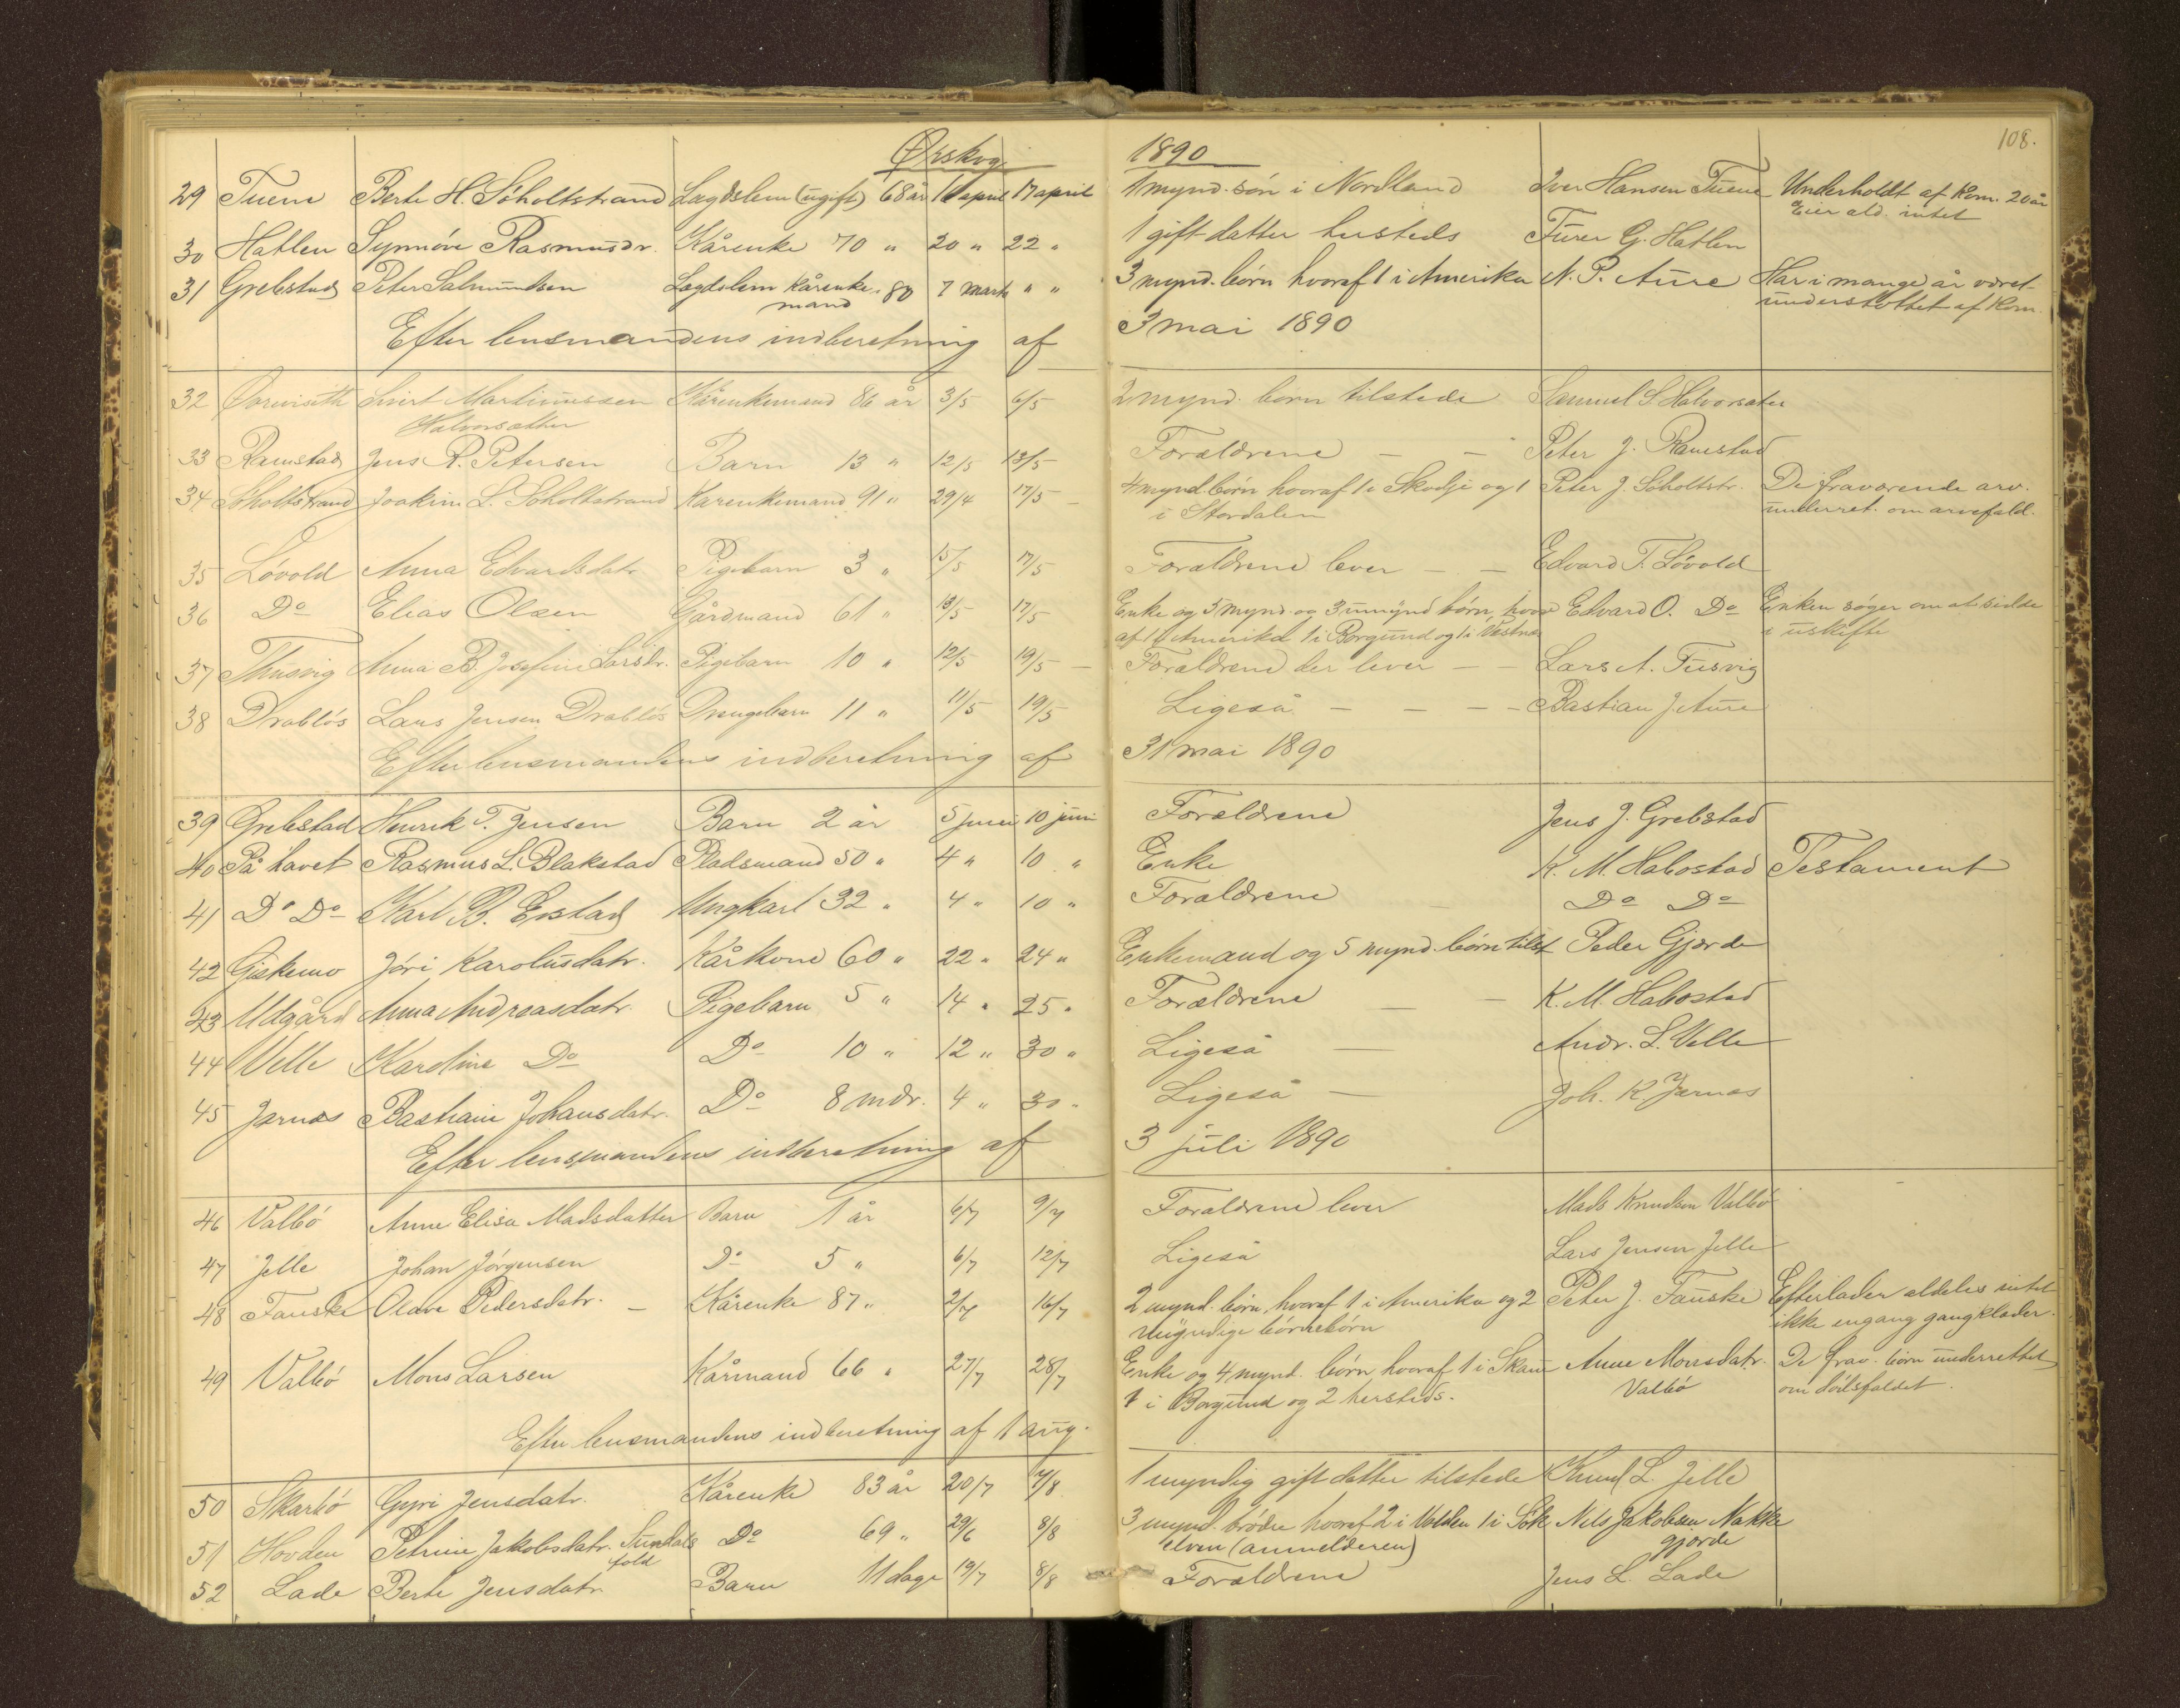 108.
Ørskog 1890
29 Tuene Berte H. Söholtstrand Lægdslem (ugift) 68 år 16 april 17 april 1 mynd. sön i Nordland Iver Hansen Tuene Underholdt af Kom. 20 år
Eier ald. intet
30 Hatlen Synnöve Rasmusdr. Kårenke 70 " 20 " 22 " 1 gift datter hersteds Furer G. Hatlen
31 Grebstad Peter Salmundsen Lægdslem Kårenke- 80 7 marts " " 3 mynd. börn hvoraf 1 i Amerika N. P. Aure Har i mange år været
mand understöttet af Kom.
Efter lensmandens indberetning af 3 mai 1890
32 Sivert Martinussen Kårenkemand 86 år 3/5 6/5 2 mynd. börn tilstede Samuel S. Halvorsæter
Halvorsætter
33 Ramstad Jens R. Petersen Barn 13 " 12/5 13/5 Forældrene - - Peter J. Ramstad
34 Söholtstrand Joakim L. Söholtstrand Kårenkemand 91 " 29/4 17/5 - 4 mynd. börn hvoraf 1 i Skodje og 1 Peter J. Söholtstr. De fraværende arv.
i Stordalen underret. om arvefald.
35 Lövold Anna Edvardsdatr. Pigebarn 3 " 15/5 17/5 Forældrene lever - - Edvard T. Lövold
36 Do Elias Olsen Gårdmand 61 " 13/5 17/5 Enke og 5 mynd. og 3 umynd börn, hvor Edvard O. Do Enken söger om at sidde
af 1 i Amerika 1 i Borgund og 1 i Vestnæs i uskifte
37 Thusvig Anna B. Josefine Larsdr. Pigebarn 10 " 12/5 19/5 - Forældrene der lever - - Lars A. Tusvig
38 Drablös Lars Jensen Drablös Drengebarn 11 " 11/5 19/5 Ligeså - - - - Bastian J. Aure
Efter lensmandens indberetning af 31 mai 1890
39 Grebstad Henrik T. Jensen Barn 2 år 5 juni 10 juni Forældrene Jens J. Grebstad
40 På havet Rasmus L. Blakstad Pladsmand 50 " 4 " 10 " Enke K. M. Habostad Testament
41 Do Do Karl B. Erstad Ungkarl 32 " 4 " 10 " Forældrene - Do Do
42 Giskemo Jöri Karolusdatr. Kårkone 60 " 22 " 24 " Enkemand og 5 mynd. börn tilst Peder Gjærde
43 Udgård Anna Andreasdatr. Pigebarn 5 " 14 " 25 " Forældrene - - K. M. Habostad
44 Velle Karoline Do Do 10 " 12 " 30 " Ligeså - Andr. L. Velle
45 Jarnæs Bastiane Johansdatr. Do 8 mdr. 4 " 30 " Ligeså - Joh. K. Jarnæs
Efter lensmandens indberetning af 3 juli 1890
46 Valbö Anne Elisa Madsdatter Barn 1 år 6/7 9/7 Forældrene lever Mads Knudsen Valbö
47 Jelle Johan Jörgensen Do 5 " 6/7 12/7 Ligeså Lars Jensen Jelle
48 Fauske Olave Pedersdatr. - Kårenke 87 " 2/7 16/7 2 mynd. börn, hvoraf 1 i Amerika og 2 Peter J. Fauske Efterlader aldeles intet
umyndige börnebörn ikke engang gangklæder.
49 Valbö Mons Larsen Kårmand 66 " 27/7 28/7 Enke og 4 mynd. börn hvoraf 1 i Skam Anne Monsdatr. De frav. börn underrettet
1 i Borgund og 2 hersteds. Valbö om dödsfaldet.
Efter lensmandens indberetning af 1 aug.
50 Skarbö Gyri Jensdatr. Kårenke 83 år 20/7 4/8 1 myndig gift datter tilstede Knud L. Jelle
51 Hovden Petrine Jakobsdatr. Sundals Do 69 " 29/6 8/8 3 mynd. brödre hvoraf 2 i Volden 1 i Sök Nils Jakobsen Nakke
fold elven (anmelderen) gjörde
52 Lade Berte Jensdatr. Barn 11 dage 19/7 8/8 Forældrene Jens L. Lade